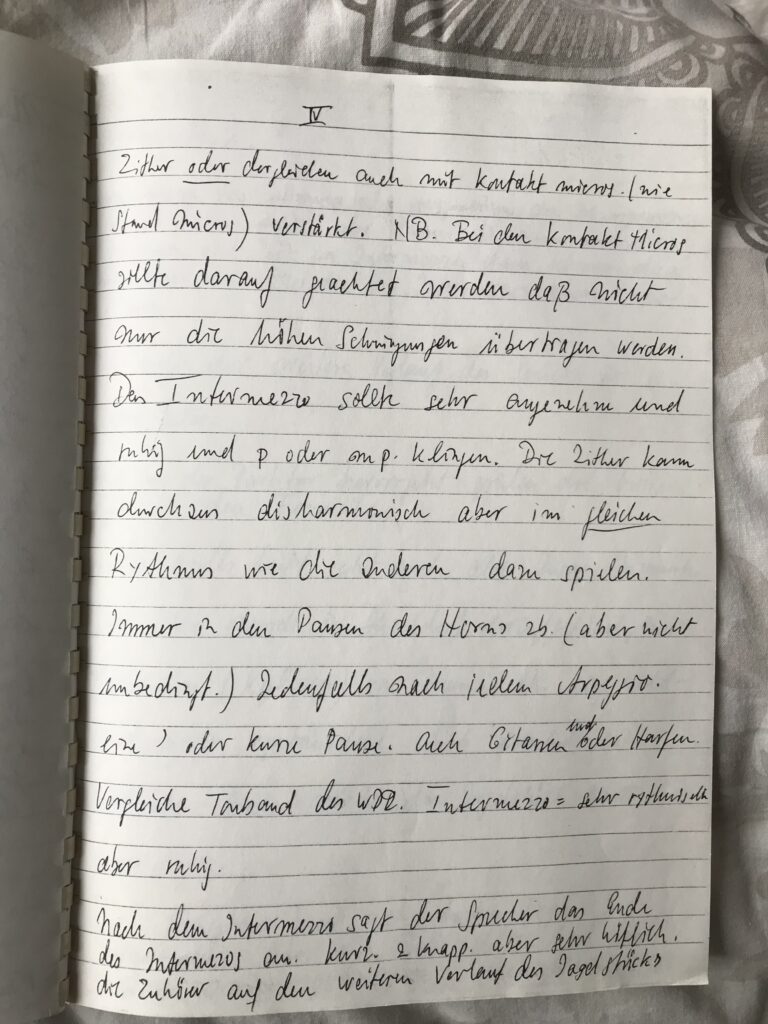 IV
Zither oder dergleichen auch mit Kontakt micros. (nie
Stand Micros) verstärkt. NB. Bei den Kontakt Micros
sollte darauf geachtet werden daß nicht
nur die höhen Schwingungen übertragen werden.
Das Intermezzo sollte sehr angenehm und
ruhig und p oder mp. klingen. Die Zither kann
durchaus disharmonisch aber im gleichen
Rythmus wie die anderen dazu spielen.
Immer in den Pausen des Horns zb. (aber nicht
unbedingt.) Jedenfalls nach jedem Arpeggio.
eine ) oder kurze Pause. Auch Gitarren und oder Harfen.
Vergleiche Tonband des WDR. Intermezzo = sehr rythmisch
aber ruhig.
Nach dem Intermezzo sagt der Sprecher das Ende
des Intermezos an. kurz. & knapp. aber sehr höflich.
die Zuhörer auf den weiteren Verlauf des Jagdstücks